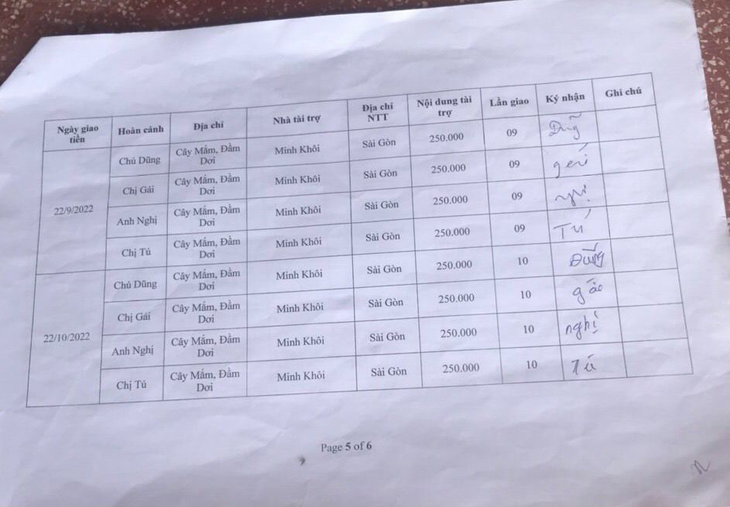 Ngày giao tiền Hoàn cảnh Địa chỉ Nhà tài trợ Địa chỉ NTT Nội dung tài trợ Lần giao Ký nhận Ghi chú
22/9/2022 Chú Dũng Cây Mắm, Đầm Dơi Minh Khôi Sài Gòn 250.000 09 Dũng
Chị Gái Cây Mắm, Đầm Dơi Minh Khôi Sài Gòn 250.000 09
Anh Nghị Cây Mắm, Đầm Dơi Minh Khôi Sài Gòn 250.000 09
Chị Tú Cây Mắm, Đầm Dơi Minh Khôi Sài Gòn 250.000 09 Tú
22/10/2022 Chú Dũng Cây Mắm, Đầm Dơi Minh Khôi Sài Gòn 250.000 10 Dũng
Chị Gái Cây Mắm, Đầm Dơi Minh Khôi Sài Gòn 250.000 10
Anh Nghị Cây Mắm, Đầm Dơi Minh Khôi Sài Gòn 250.000 10 nghị
Chị Tú Cây Mắm, Đầm Dơi Minh Khôi Sài Gòn 250.000 10 Tú
Page 5 of 6